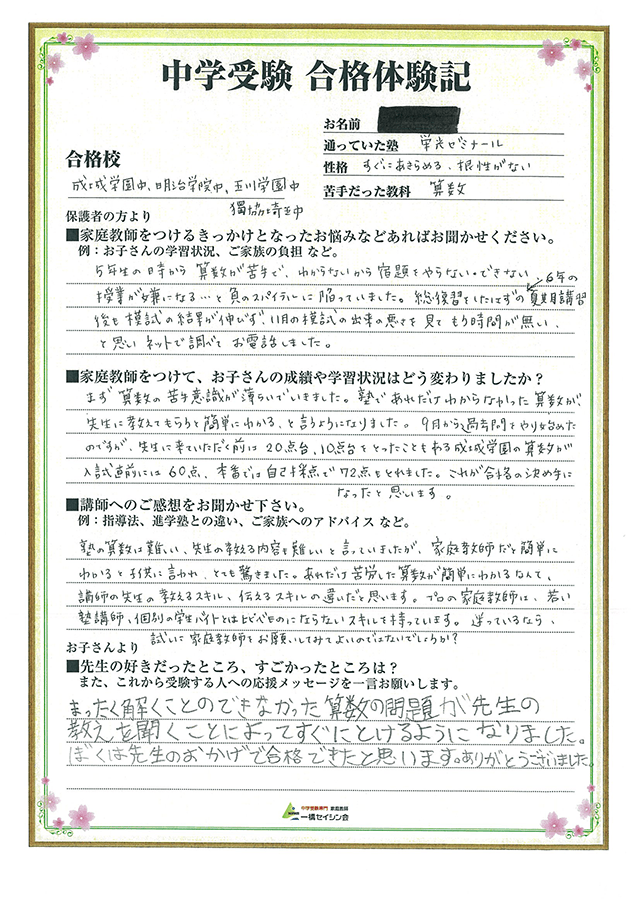 中学受験 合格体験記
お名前
通っていた塾 栄光ゼミナール
合格校
性格 すぐにあきらめる、根性がない
成城学園中、明治学院中、玉川学園中
苦手だった教科 算数
獨協埼玉中
保護者の方より
■家庭教師をつけるきっかけとなったお悩みなどあればお聞かせください。
例：お子さんの学習状況、ご家族の負担 など。
5年生の時から算数が苦手で、わからないから宿題をやらない・できない
6年の
授業が嫌になる…と負のスパイラルに陥っていました。総復習をしたはずの夏期講習
後も模試の結果が伸びず、11月の模試の出来の悪さを見てもう時間が無い、
と思いネットで調べてお電話しました。
■家庭教師をつけて、お子さんの成績や学習状況はどう変わりましたか？
まず算数の苦手意識が薄らいでいきました。塾であれだけわからなかった算数が、
先生に教えてもらうと簡単にわかる、と言うようになりました。9月から過去問をやり始めた
のですが、先生に来ていただく前は20点台、10点台をとったこともある成城学園の算数が
入試直前には60点、本番では自己採点で72点もとれました。これが合格の決め手に
なったと思います。
■講師へのご感想をお聞かせ下さい。
例：指導法、進学塾との違い、ご家族へのアドバイス など。
塾の算数は難しい、先生の教える内容も難しいと言っていましたが、家庭教師だと簡単に
わかると子供に言われ、とても驚きました。あれだけ苦労した算数が簡単にわかるなんて、
講師の先生の教えるスキル、伝えるスキルの違いだと思います。プロの家庭教師は、若い
塾講師、個別の学生バイトとは比べものにならないスキルを持っています。迷っているなら、
試しに家庭教師をお願いしてみてよいのではないでしょうか？
お子さんより
■先生の好きだったところ、すごかったところは？
また、これから受験する人への応援メッセージを一言お願いします。
まったく解くことのできなかった算数の問題が先生の
教えを聞くことによってすぐにとけるようになりました。
ぼくは先生のおかげで合格できたと思います。ありがとうございました。
中学受験専門 家庭教師
一橋セイシン会